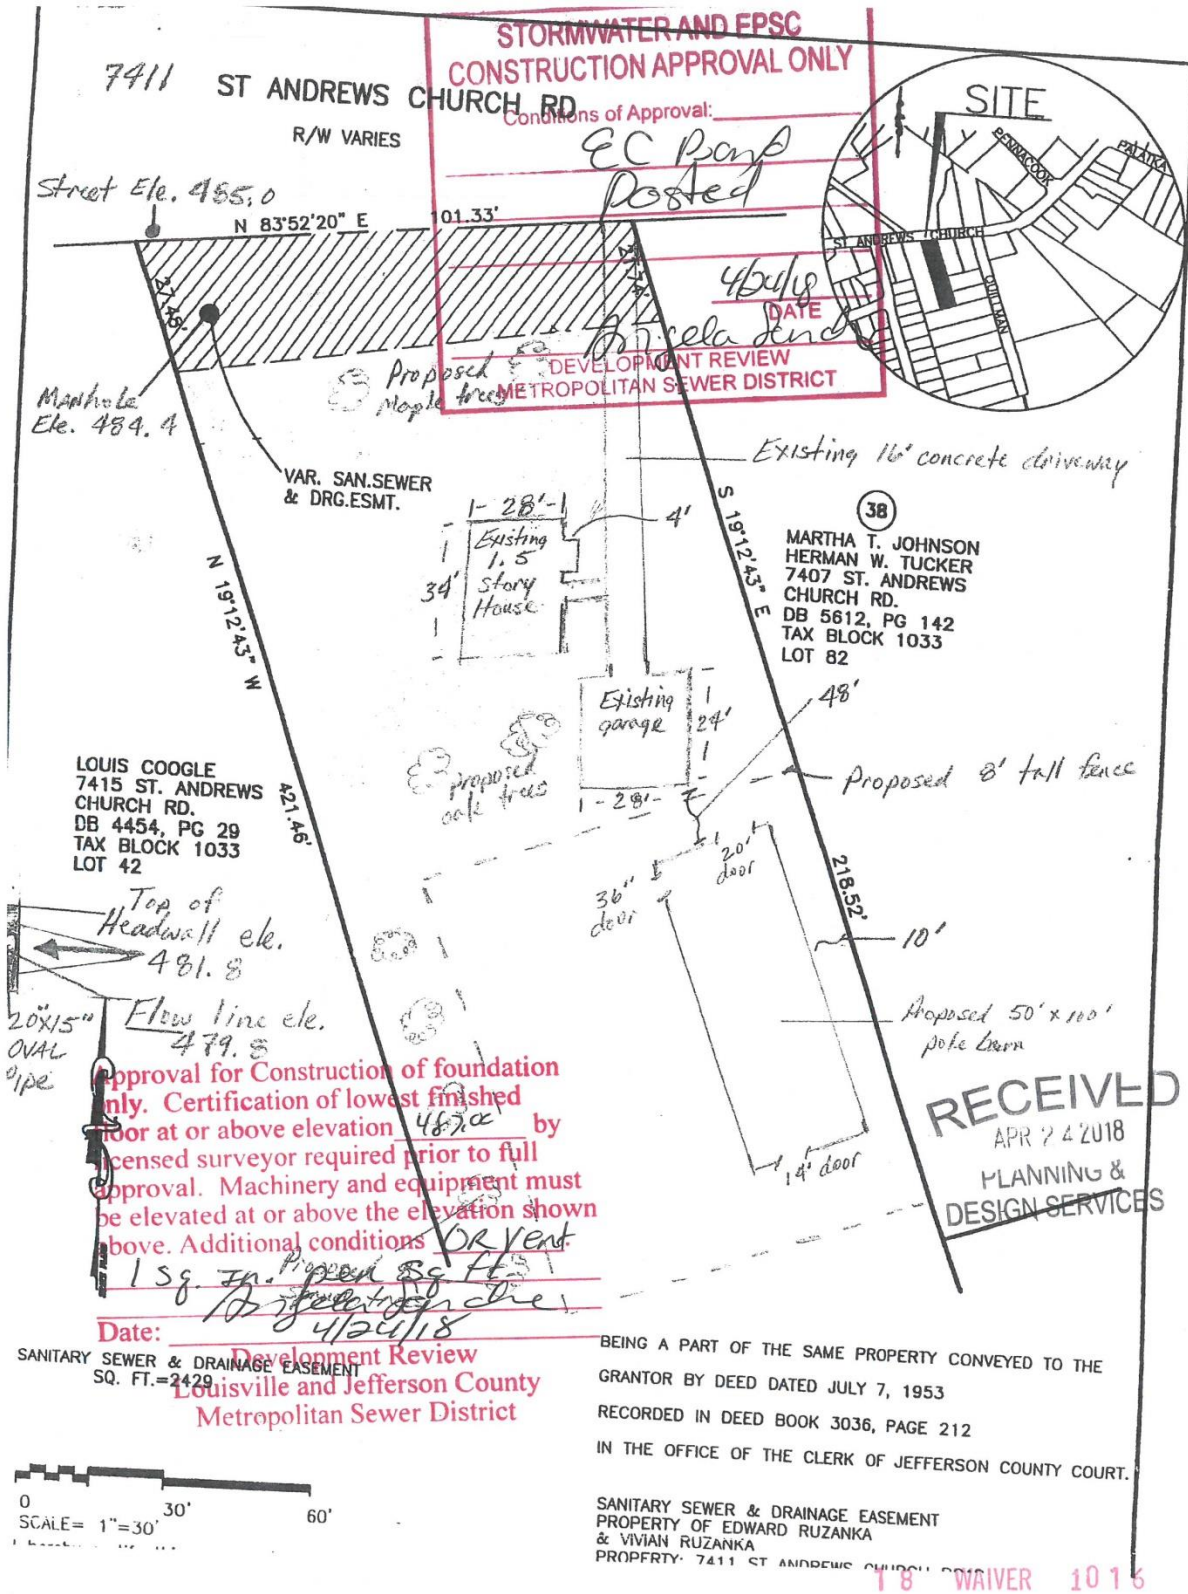 STORMWATER AND EPSC
CONSTRUCTION APPROVAL ONLY
Conditions of Approval:
EC Bond
Posted
4/24/18
DATE
DEVELOPMENT REVIEW
METROPOLITAN SEWER DISTRICT
7411
ST ANDREWS CHURCH RD
R/W VARIES
SITE
PENNACOOK
PALATKA
ST ANDREWS CHURCH
QUILLMAN
Street Ele. 485.0
N 83°52'20" E
101.33'
27.48'
27.74'
Manhole
Ele. 484.4
Proposed
Maple trees
VAR. SAN.SEWER
& DRG.ESMT.
Existing 16' concrete driveway
28'
4'
Existing
1.5
Story
House
34'
S 19°12'43" E
N 19°12'43" W
38
MARTHA T. JOHNSON
HERMAN W. TUCKER
7407 ST. ANDREWS
CHURCH RD.
DB 5612, PG 142
TAX BLOCK 1033
LOT 82
Existing
garage
24'
28'
48'
Proposed 8' tall fence
proposed
oak trees
LOUIS COOGLE
7415 ST. ANDREWS
CHURCH RD.
DB 4454, PG 29
TAX BLOCK 1033
LOT 42
421.46'
218.52'
20'
door
36"
door
10'
Top of
Headwall ele.
481.8
20"X15"
OVAL
Pipe
Flow line ele.
479.8
Proposed 50' x 100'
pole barn
14' door
RECEIVED
APR 24 2018
PLANNING &
DESIGN SERVICES
Approval for Construction of foundation
only. Certification of lowest finished
floor at or above elevation by
licensed surveyor required prior to full
approval. Machinery and equipment must
be elevated at or above the elevation shown
above. Additional conditions OR Vent
1 Sq. In. per Sq Ft
Proposed
Date: 4/24/18
Development Review
Louisville and Jefferson County
Metropolitan Sewer District
SANITARY SEWER & DRAINAGE EASEMENT
SQ. FT.=2429
BEING A PART OF THE SAME PROPERTY CONVEYED TO THE
GRANTOR BY DEED DATED JULY 7, 1953
RECORDED IN DEED BOOK 3036, PAGE 212
IN THE OFFICE OF THE CLERK OF JEFFERSON COUNTY COURT.
0 30' 60'
SCALE= 1"=30'
SANITARY SEWER & DRAINAGE EASEMENT
PROPERTY OF EDWARD RUZANKA
& VIVIAN RUZANKA
PROPERTY: 7411 ST ANDREWS CHURCH
18 WAIVER 1016